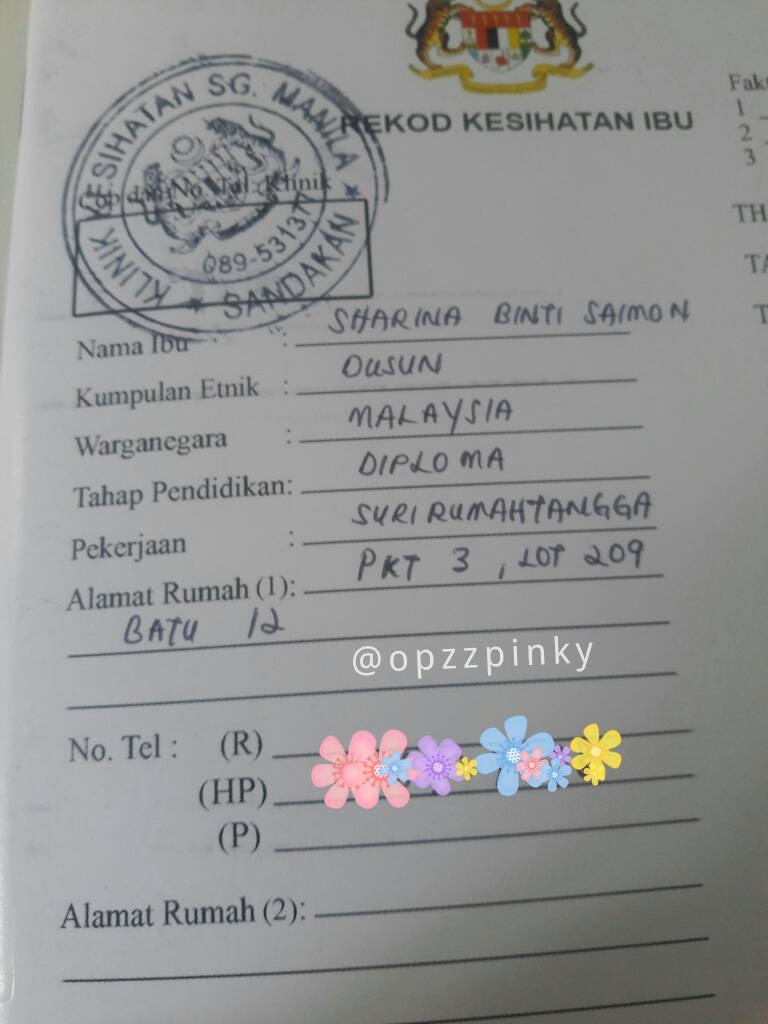 REKOD KESIHATAN IBU
KLINIK KESIHATAN SG. MANILA
SANDAKAN
Cop dan No. Tel. Klinik
089-531377
Nama Ibu : SHARINA BINTI SAIMON
Kumpulan Etnik : DUSUN
Warganegara : MALAYSIA
Tahap Pendidikan: DIPLOMA
Pekerjaan : SURI RUMAHTANGGA
Alamat Rumah (1): PKT 3 , LOT 209
BATU 12
@opzzpinky
No. Tel : (R)
(HP)
(P)
Alamat Rumah (2):
1
2
3